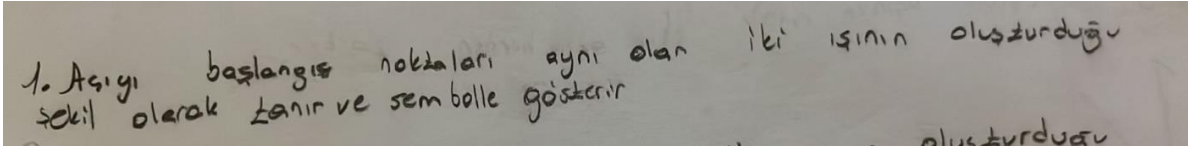 1. Açıyı başlangıç noktaları aynı olan iki ışının oluşturduğu
şekil olarak tanır ve sembolle gösterir
oluşturduğu